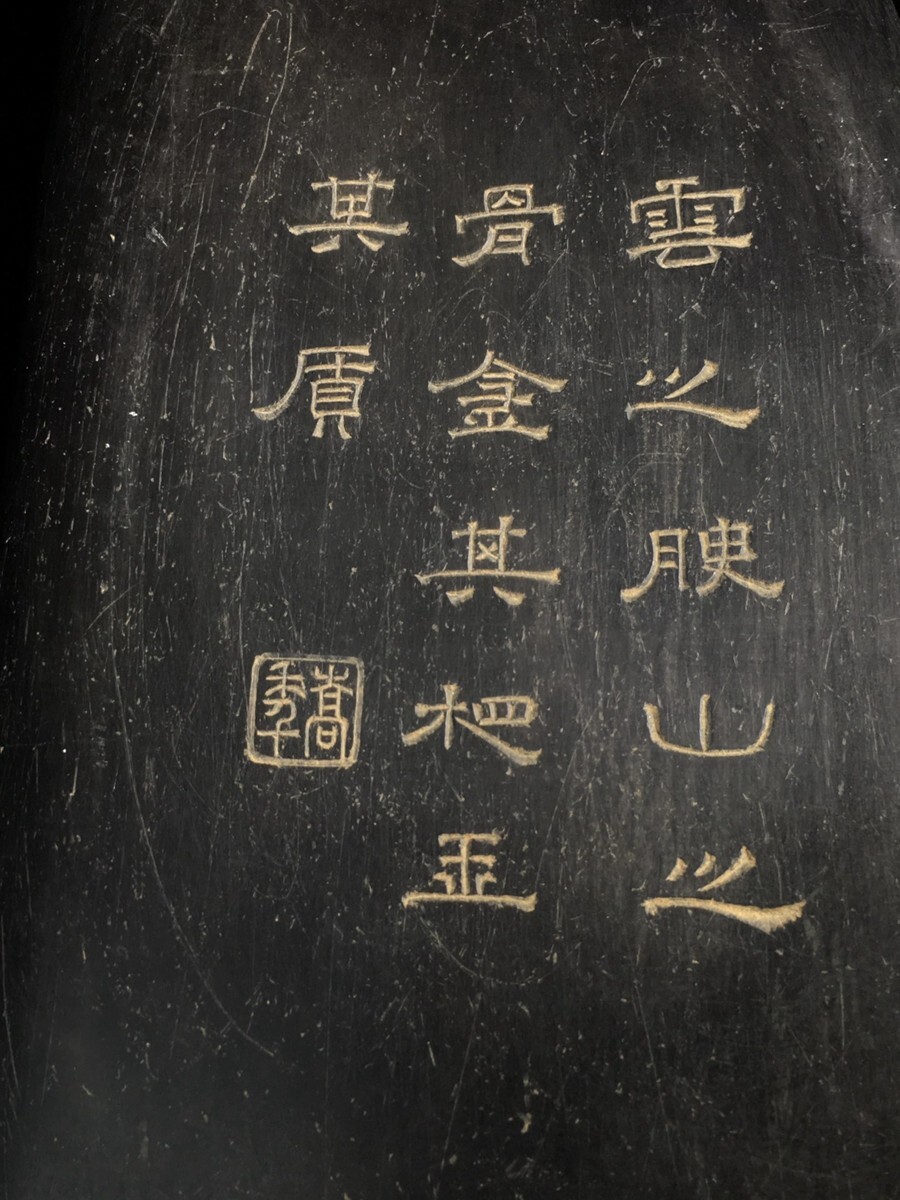 雲之腴山之
骨金其相玉
其質